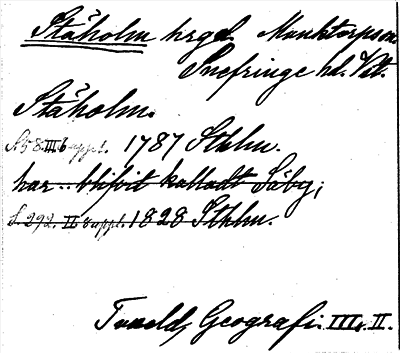 Ståholm hrgd. Munktorps sn
Snefringe hd. Vtl.
Ståholm.
S. 58. III. 6 uppl. 1787 Sthlm.
har .. blifvit kalladt Säby;
S. 292. II. 8 uppl. 1828 Sthlm.
Tuneld, Geografi. III, II.